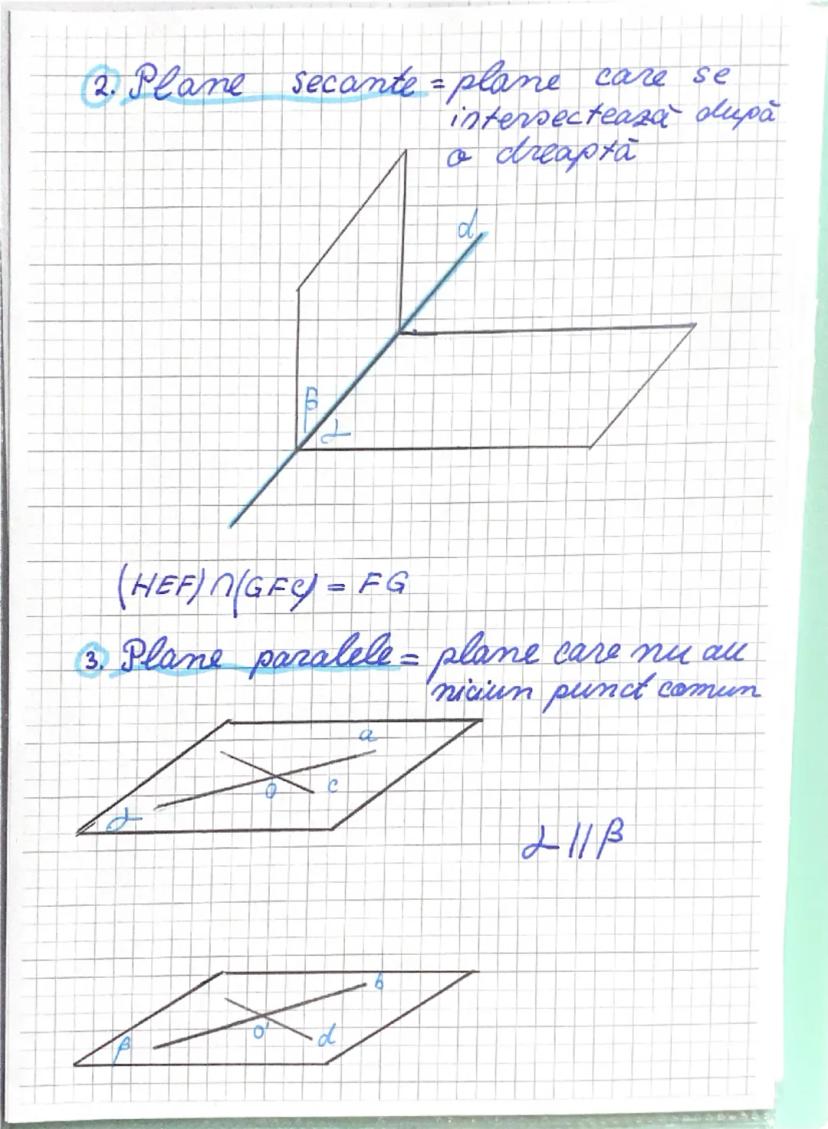 2. Plane secante = plane care se
intersectează după
o dreaptă
d
β
α
(HEF)∩(GFC) = FG
3. Plane paralele = plane care nu au
niciun punct comun
a
O
c
α
α // β
b
O'
d
β